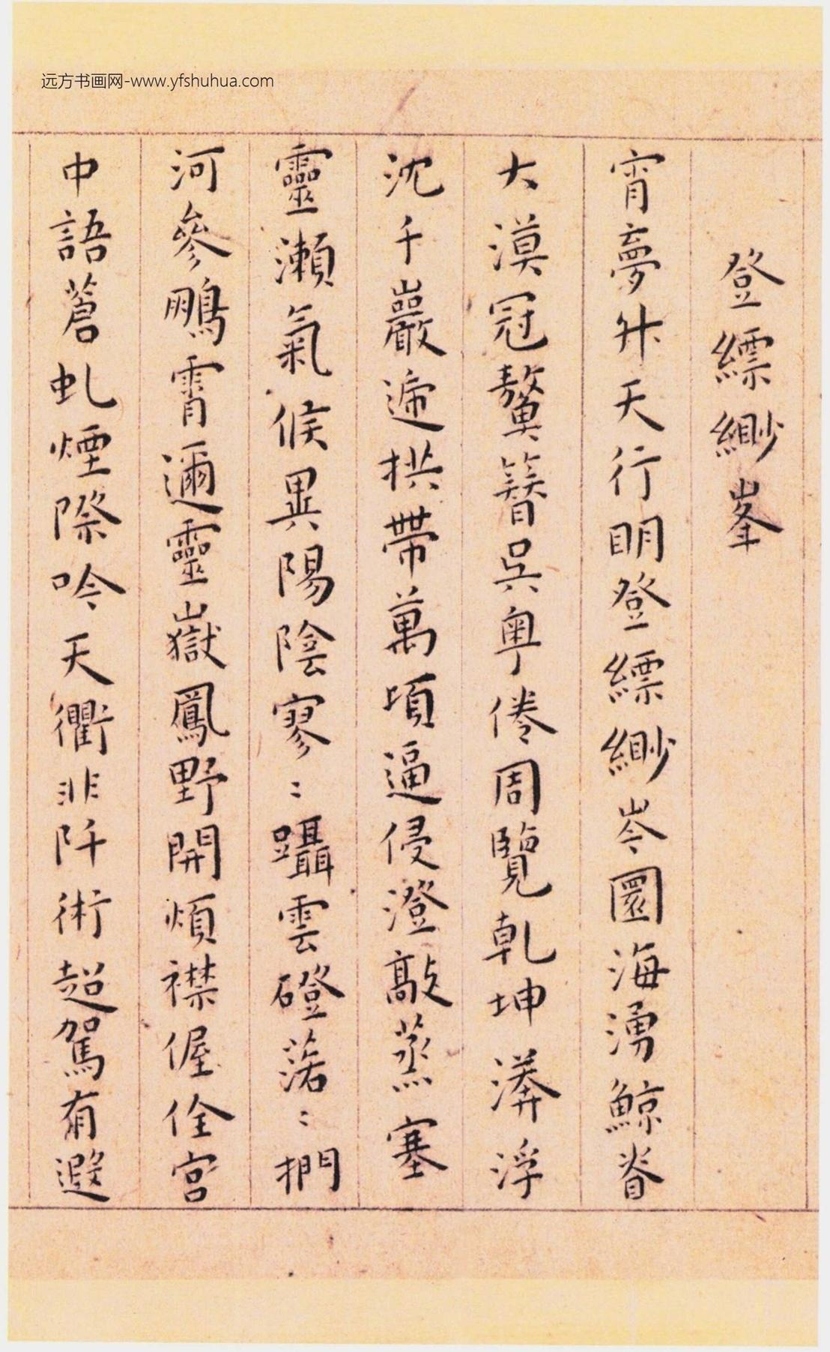 远方书画网-www.yfshuhua.com
登縹緲峯
宵夢升天行明登縹緲岑圜海湧鯨脊
大漠冠鼇簪吳粤倦周覽乾坤漭浮
沈千巖遞拱帶萬頃逼侵澄歊蒸塞
靈瀨氣候異陽陰寥〻躡雲磴蕩〻捫
河參鵬霄邇靈嶽鳳野開煩襟偓佺宮
中語蒼虬煙際吟天衢非阡術超駕有避